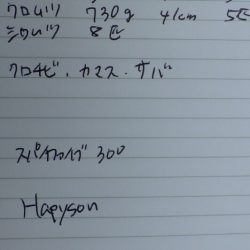 クロムツ 730g 41cm 5匹
シロムツ 8匹
クロチビ・カマス・サバ
300
Hapyson